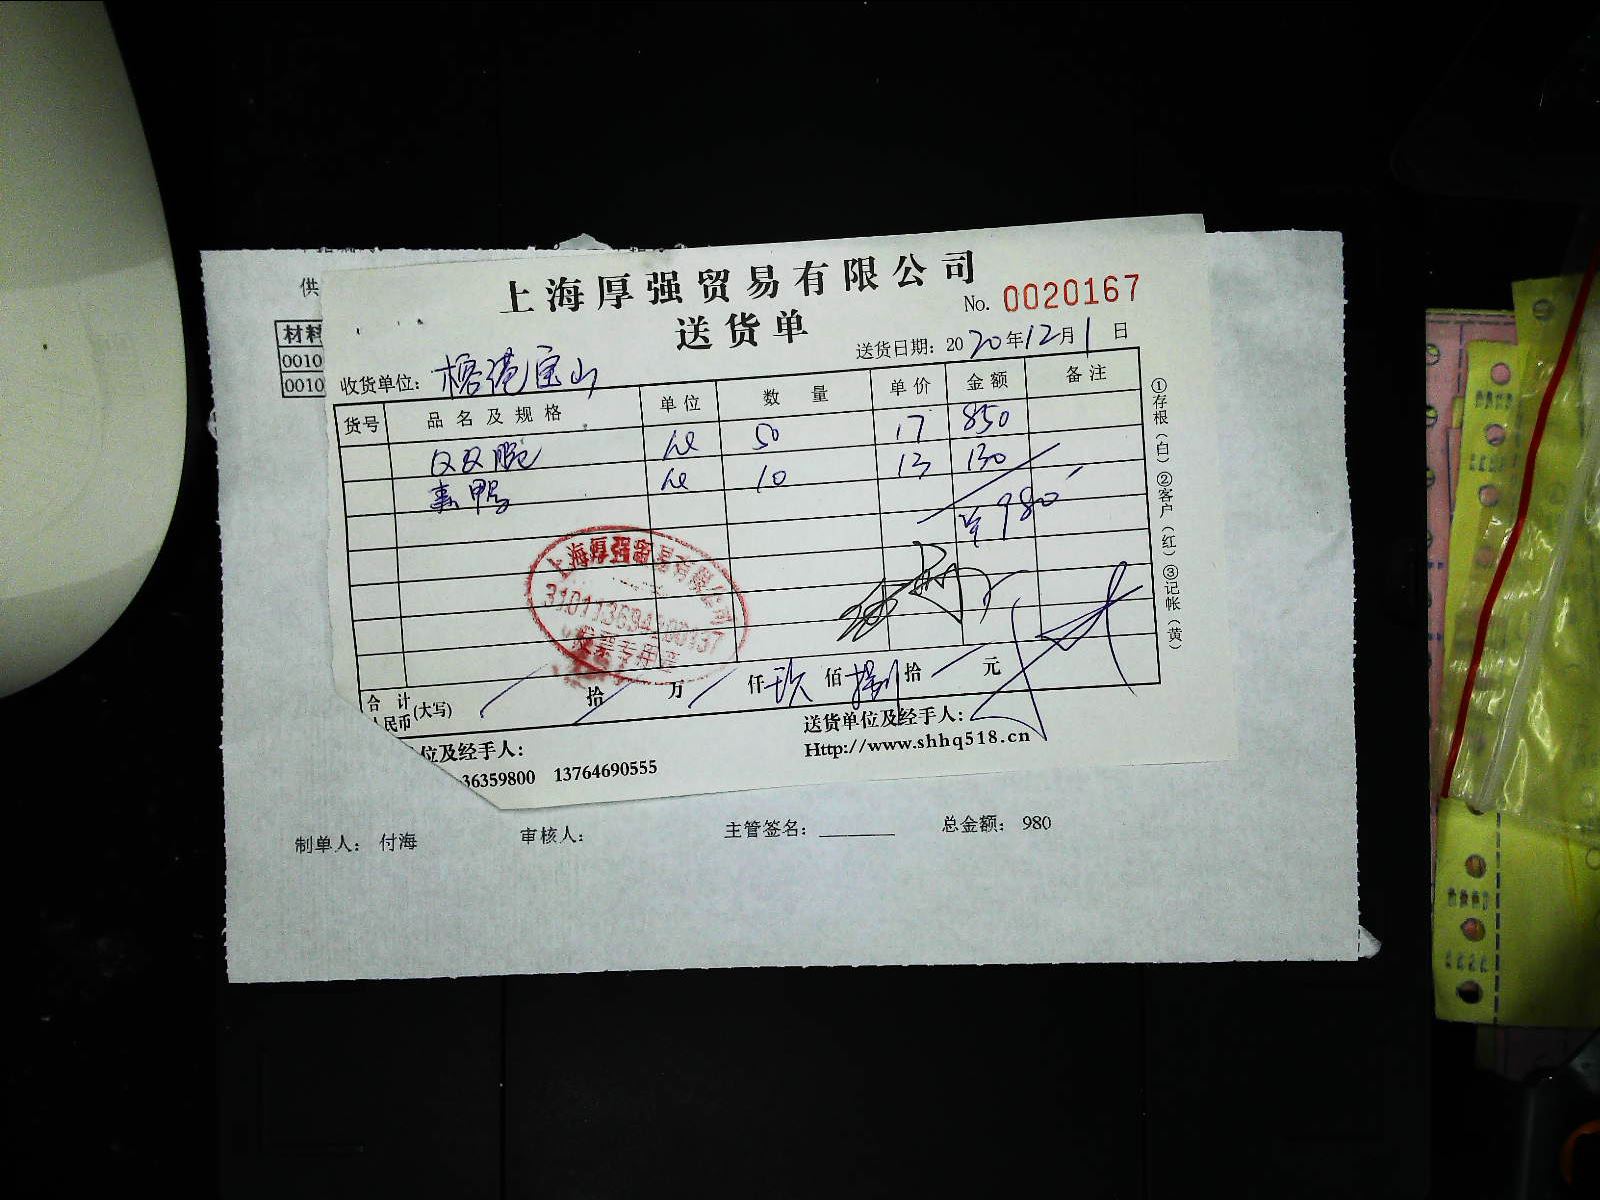 供
材料
0010
0010
上海厚强贸易有限公司
No. 0020167
送货单
送货日期：2020年12月1日
收货单位：榕港宝山
货号 品名及规格 单位 数量 单价 金额 备注
50 17 850
素鸭 10 13 130
¥980
上海厚强贸易有限公司
发票专用章
合计人民币(大写) 拾 万 仟 玖 佰 捌 拾 元
位及经手人：
送货单位及经手人：
36359800 13764690555
Http://www.shhq518.cn
①存根（白）②客户（红）③记帐（黄）
制单人： 付海 审核人： 主管签名： 总金额： 980